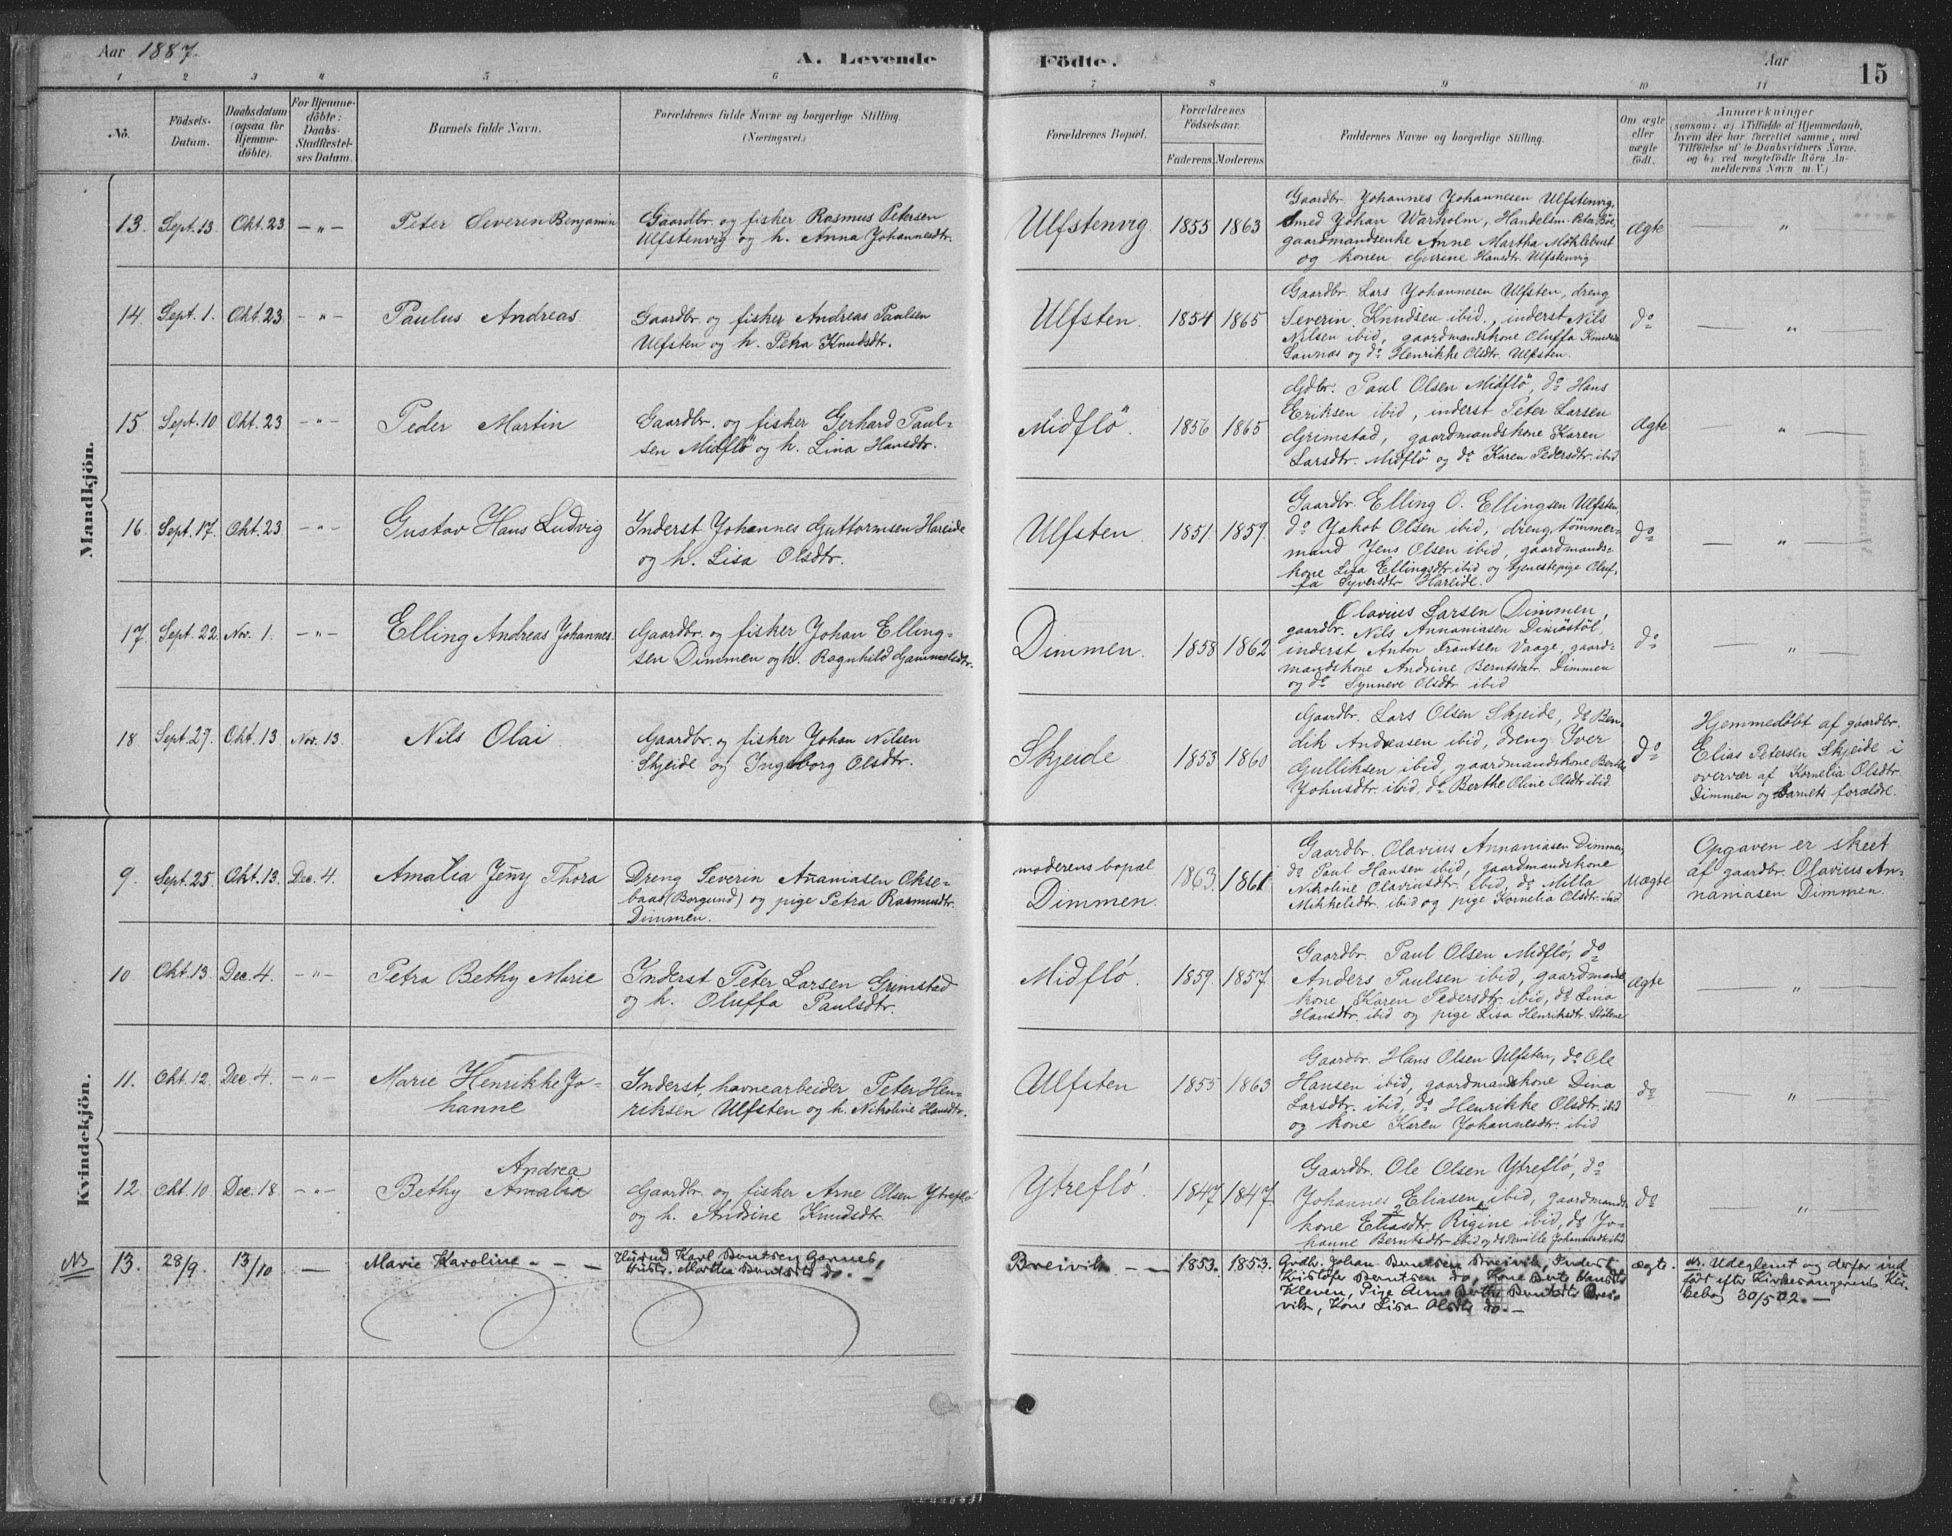 Aar 1887. A. Levende Födte. Aar 15
1 2 3 4 5 6 7 8 9 10 11
No. Födsels-Datum. Daabsdatum (ogsaa for Hjemme-döbte). For Hjemme-döbte: Daabs-Stadfæstel-ses Datum. Barnets fulde Navn. Forældrenes fulde Navne og borgerlige Stilling (Næringsvei.) Forældrenes Bopæl. Forældrenes Födselsaar. Faderens Moderens Faddernes Navne og borgerlige Stilling. Om ægte eller uægte födt. Anmærkninger (saasom: a) i Tilfælde af Hjemmedaab, hvem der har forrettet samme, med Tilföielse af to Daabsvidners Navne, og b) ved uægtefödte Börn Anmelderens Navn m. V.)
Mandkjön.
13. Sept. 13 Okt. 23 — " — Peter Severin Benjamin
Gaardbr. og fisker Rasmus Petersen
Ulfstenvig og h. Anna Johannesdtr.
Ulfstenvig 1855 1863
Gaardbr. Johannes Johannesen Ulfstenvig,
Smed Johan Warholm, Handelsm. Peter Böe,
gaardmandsenke Anne Martha Möklebust
og konen Gurine Hansdtr. Ulfstenvig
Ægte — " —
14 Sept. 1. Okt. 23 — " — Paulus Andreas
Gaardbr. og fisker Andreas Paulsen
Ulfsten og h. Petra Knudsdtr.
Ulfsten. 1854 1865
Gaardbr. Lars Johannesen Ulfsten, dreng
Severin Knudsen ibid., inderst Nils
Nilsen ibid, gaardmandskone Oluffa Knudsdtr.
og do Henrikke Olsdtr. Ulfsten.
do — " —
15 Sept. 10 Okt. 23 — " — Peder Martin
Gaardbr. og fisker Gerhard Paul-
sen Midflö og h. Lina Hansdtr.
Midflö. 1856 1865
Gdbr. Paul Olsen Midflö, do Hans
Eriksen ibid, inderst Peter Larsen
Grimstad, gaardmandskone Karen
Larsdtr. Midflö og do Karen Pedersdtr. ibid
Ægte — " —
16. Sept. 17. Okt. 23 — " — Gustav Hans Ludvig
Inderst Johannes Guttormsen Hareide
og h. Lisa Olsdtr.
Ulfsten. 1851. 1859.
Gaardbr. Elling O. Ellingsen Ulfsten,
do Jakob Olsen ibid, dreng tömmer-
mand Jens Olsen ibid, gaardmands-
kone Lisa Ellingsdtr. ibid og tjenestepige Oluf-
fa Syversdtr Hareide.
do — " —
17. Sept. 22. Nov. 1. — " — Elling Andreas Johannes.
Gaardbr. og fisker Johan Elling-
sen Dimmen og h. Ragnhild Gammelsdtr.
Dimmen. 1858 1862
Olavius Larsen Dimmen,
gaardbr. Nils Annaniasen Dimöstöl,
inderst Anton Frantsen Vaage, gaard-
mandskone Andrine Berntsdtr. Dimmen
og do Synneve Olsdtr ibid
do — " —
18 Sept. 29. Okt. 13 Nov. 13. Nils Olai.
Gaardbr. og fisker Johan Nilsen
Skjeide og Ingeborg Olsdtr.
Skjeide 1853 1860
Gaardbr. Lars Olsen Skjeide, do Ben-
dik Andreasen ibid, dreng Iver
Gulliksen ibid, gaardmandskone Berthe
Johnsdtr. ibid, do Berthe Oline Olsdtr ibid
do
Hjemmedöbt af gaardbr.
Elias Petersen Skjeide i
overvær af Kornelia Olsdtr.
Dimmen og barnets forældre.
Kvindekjön.
9. Sept. 25. Okt. 13. Dec. 4. Amalia Jenny Thora
Dreng Severin Ananiasen Okse-
baas (Borgund) og pige Petra Rasmusdtr.
Dimmen.
moderens bopæl
Dimmen. 1863. 1861
Gaardbr. Olavius Annaniasen Dimmen,
do Paul Hansen ibid, gaardmandskone
Nikoline Olaviusdtr. ibid, do Milla
Mikkelsdtr. ibid og pige Kornelia Olsdtr. ibid
Uægte
Opgaven er skeet
af gaardbr. Olavius An-
naniasen Dimmen.
10 Okt. 13 Dec. 4. — " — Petra Bethy Marie
Inderst Peter Larsen Grimstad
og h. Oluffa Paulsdtr.
Midflö 1859. 1857.
Gaardbr. Paul Olsen Midflö, do
Anders Paulsen ibid, gaardmands-
kone Karen Pedersdtr ibid, do Lina
Hansdtr. ibid og pige Lisa Henriksdtr.
Ægte — " —
11. Okt. 12. Dec. 4. — " — Marie Henrikke Jo-
hanne
Inderst, havnearbeider Peter Hen-
riksen Ulfsten og h. Nikoline Hansdtr.
Ulfsten 1855 1863
Gaardbr. Hans Olsen Ulfsten, do Ole
Hansen ibid, gaardmandskone Dina
Larsdtr. ibid, do Henrikke Olsdtr. ibid
og kone Karen Johannesdtr. ibid
do — " —
12 Okt. 10 Dec. 18. — " — Bethy Andrea Amalia
Gaardbr. og fisker Arne Olsen Ytreflö
og h. Andrine Knudsdtr.
Ytreflö. 1847. 1847.
Gaardbr. Ole Olsen Ytreflö, do
Johannes Eliasen ibid, gaardmands-
kone Eliasdtr. Rigine ibid, do Jo-
hanne Berntsdtr. ibid og do Pernille Johannesdtr ibid
do — " —
NB 13. 28/9. 13/10 — Marie Karoline - - -
Karl Berntsen Garnes,
Hustr. Martha Berntsdtr do. -
Breivik - - 1853. 1853.
Grdbr. Johan Berntsen Breivik, Inderst
Kristofer Berntsen do, Kone Berte Hansdtr
Kleven, Pige Anne Berthe Berntsdtr Brei-
vik, Kone Lisa Olsdtr do. -
ægte.
NB. Udeglemt og derfor ind
fört efter Kirkesangerens Klo-
kebog 30/5 02. —